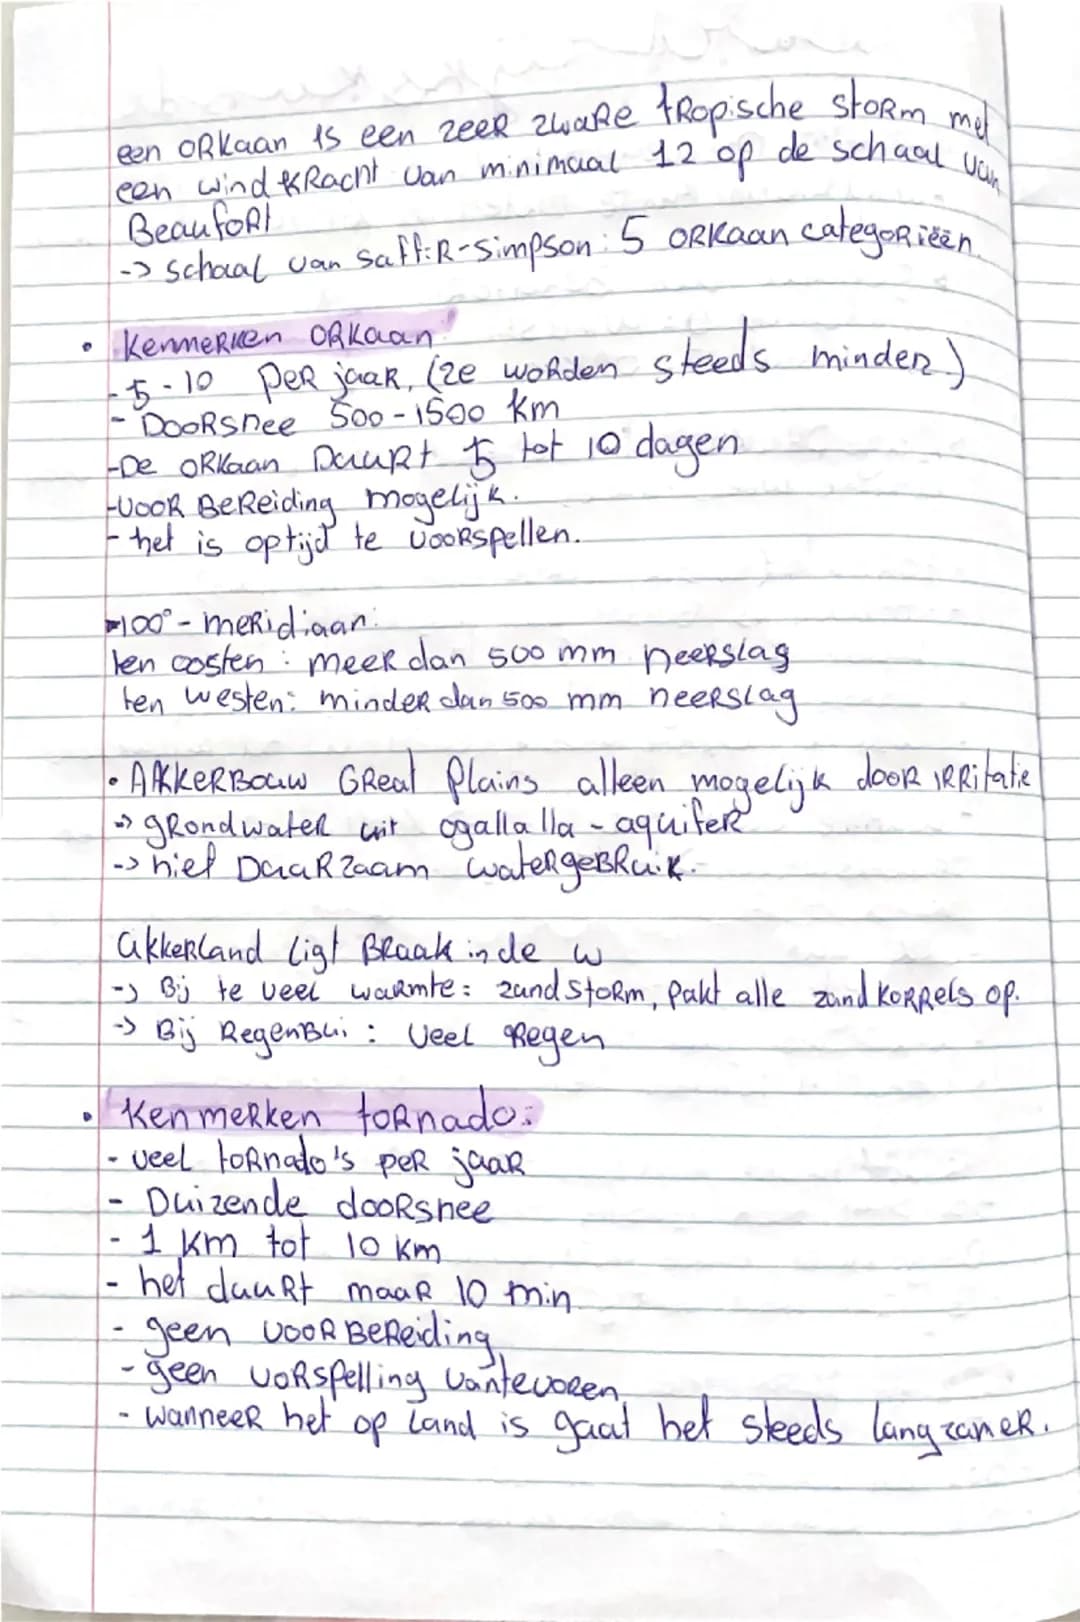 een orkaan is een zeer zware tropische storm met
een windkracht van minimaal 12 op de schaal van
Beaufort
-> schaal van saffir-simpson: 5 orkaan categorieën.
• Kenmerken orkaan
- 5-10 per jaar, (ze worden steeds minder)
- Doorsnee 500-1500 km
- De orkaan Duurt 5 tot 10 dagen
- voor Bereiding mogelijk.
- het is optijd te voorspellen.
100° - meridiaan:
ten oosten: meer dan 500 mm neerslag
ten westen: minder dan 500 mm neerslag
• Akkerbouw Great Plains alleen mogelijk door irritatie
-> grondwater uit ogallalla - aquifer
-> niet Duurzaam watergebruik.
akkerland ligt Braak in de w
-> Bij te veel warmte: zandstorm, pakt alle zand korrels op.
-> Bij Regenbui: veel Regen
• Kenmerken tornado:
- veel tornado's per jaar
- Duizende doorsnee
- 1 km tot 10 km
- het duurt maar 10 min
- geen voorbereiding
- geen vorspelling vantevoren
- wanneer het op land is gaat het steeds langzamer.